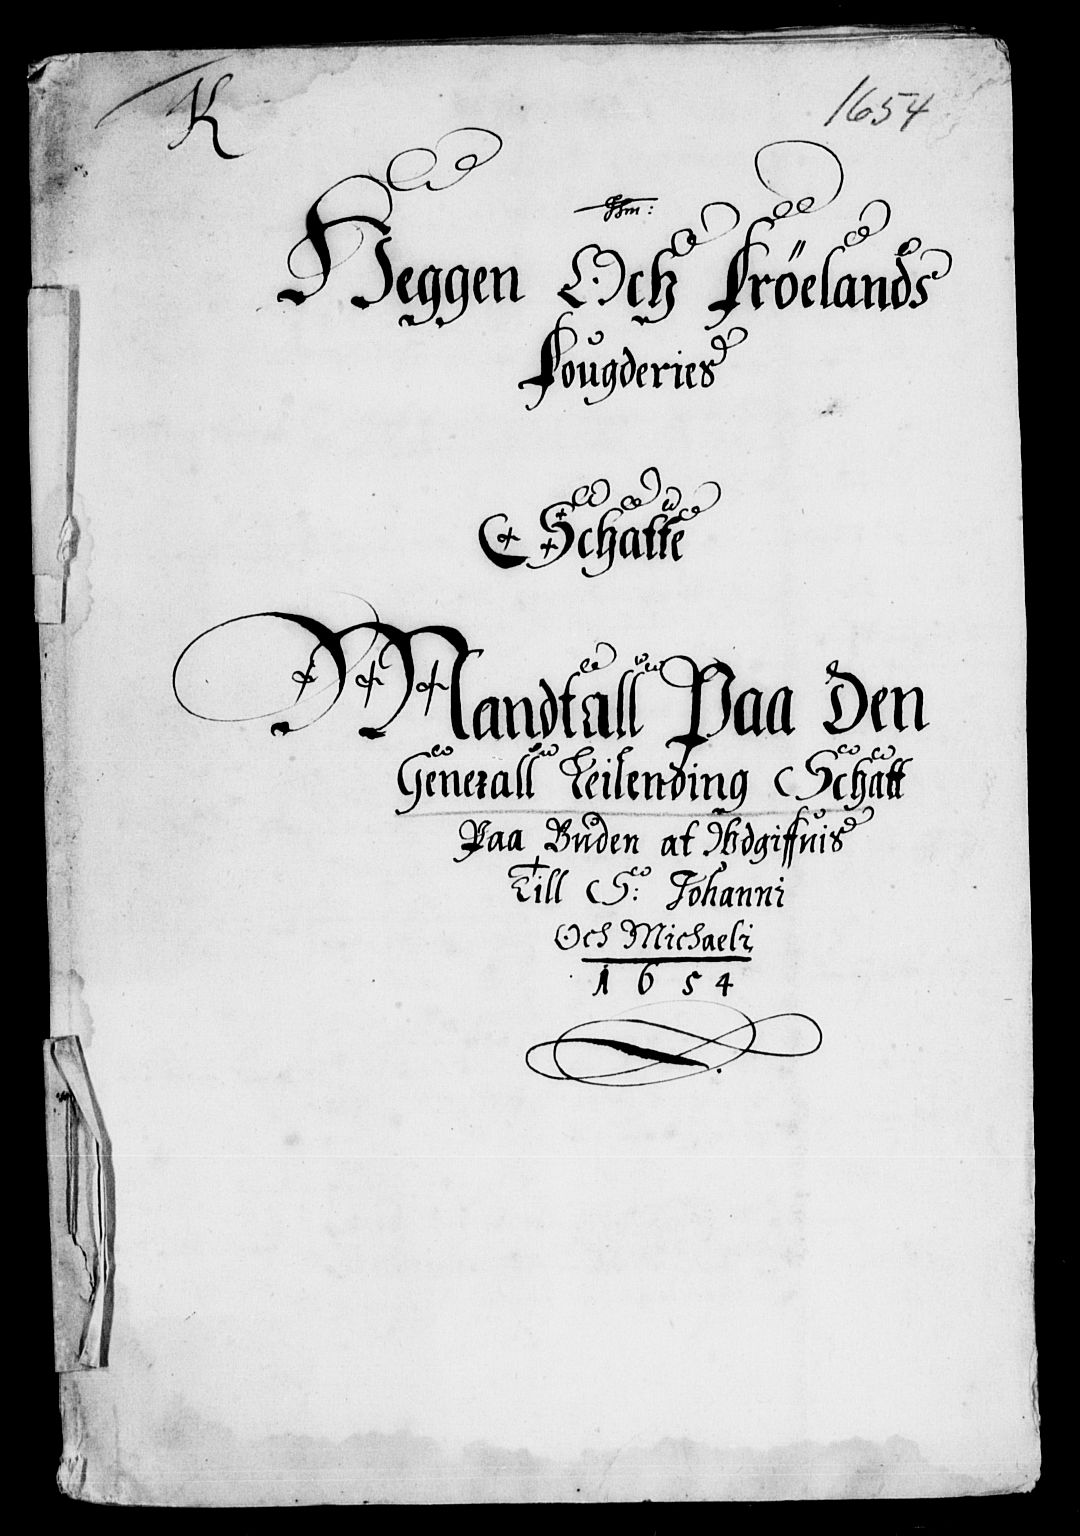 K
1654
Heggen Och Fröelands
Fougderies
Schatte
Mandtall Paa Den
Generall Leilending Schatt
Paa Buden at Wdgiffuis
Till S: Johanni
Och Michaeli
1654